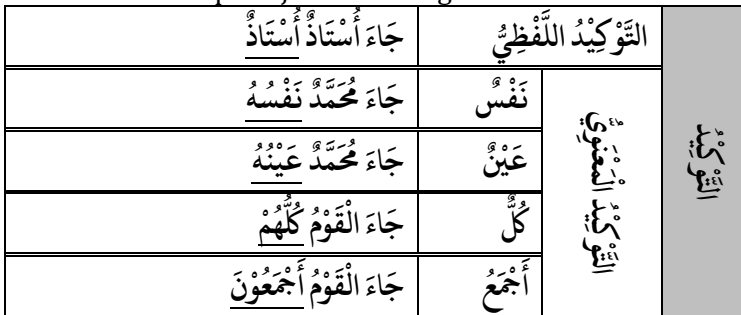 التَّوْكِيْدُ
التَّوْكِيْدُ اللَّفْظِيُّ جَاءَ أُسْتَاذٌ أُسْتَاذٌ
التَّوْكِيْدُ الْمَعْنَوِيُّ
نَفْسٌ جَاءَ مُحَمَّدٌ نَفْسُهُ
عَيْنٌ جَاءَ مُحَمَّدٌ عَيْنُهُ
كُلٌّ جَاءَ الْقَوْمُ كُلُّهُمْ
أَجْمَعُ جَاءَ الْقَوْمُ أَجْمَعُوْنَ